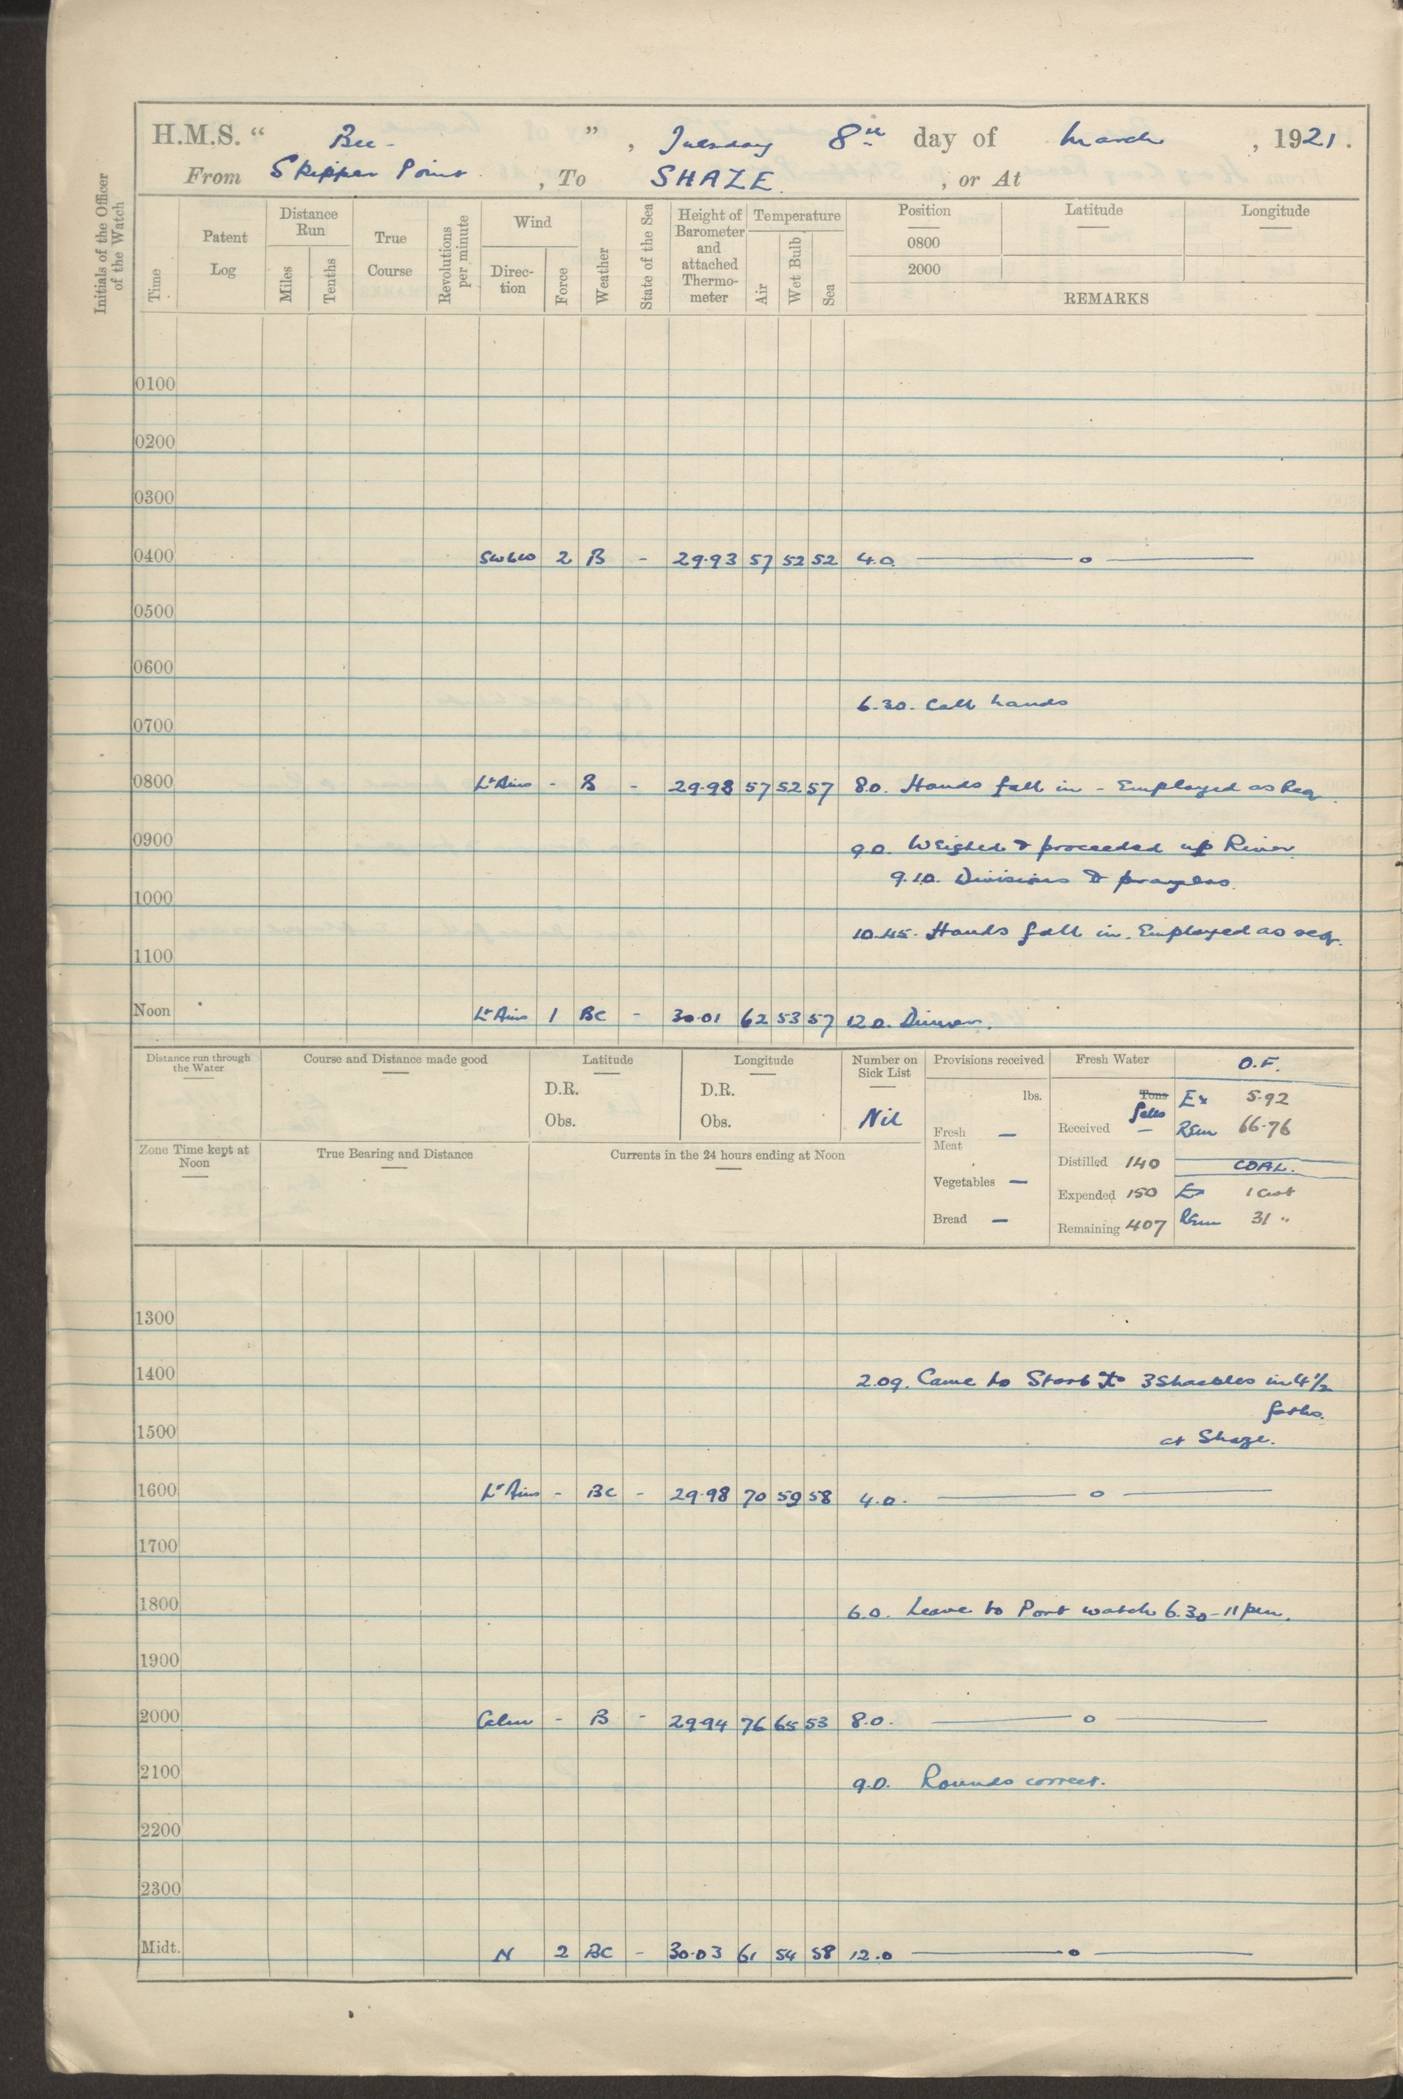 H.M.S. " Bee - ", Tuesday 8th day of March, 1921.
From Skipper Point, To SHAZE, or At
Initials of the Officer of the Watch
Time
Patent Log
Distance Run
Miles
Tenths
True Course
Revolutions per minute
Wind
Direc-tion
Force
Weather
State of the Sea
Height of Barometer and attached Thermo-meter
Temperature
Air
Wet Bulb
Sea
Position
Latitude
Longitude
0800
2000
REMARKS
0100
0200
0300
0400 SWbW 2 B - 29.93 57 52 52 4.0. —— o ——
0500
0600
6.30. Call hands
0700
0800 Lt Airs - B - 29.98 57 52 57 8.0. Hands fall in - Employed as Req.
0900 9.0. Weighed & proceeded up River
9.10. Divisions & prayers.
1000
10.45. Hands fall in. Employed as req.
1100
Noon Lt Airs 1 BC - 30.01 62 53 57 12.0. Dinner.
Distance run through the Water
Course and Distance made good
Latitude
D.R.
Obs.
Longitude
D.R.
Obs.
Number on Sick List
Nil
Provisions received
lbs.
Fresh Meat —
Vegetables —
Bread —
Fresh Water
Tons
Galls
Received —
Distilled 140
Expended 150
Remaining 407
O.F.
Ex 5.92
Rem 66.76
COAL.
Ex 1 cwt
Rem 31 "
Zone Time kept at Noon
True Bearing and Distance
Currents in the 24 hours ending at Noon
1300
1400 2.09. Came to Starb ⚓ 3 Shackles in 4½
faths.
1500 at Shaze.
1600 Lt Airs - BC - 29.98 70 59 58 4.0. —— o ——
1700
1800 6.0. Leave to Port watch 6.30 - 11 pm.
1900
2000 Calm - B - 29.94 76 65 53 8.0. —— o ——
2100 9.0. Rounds correct.
2200
2300
Midt. N 2 BC - 30.03 61 54 58 12.0 —— o ——